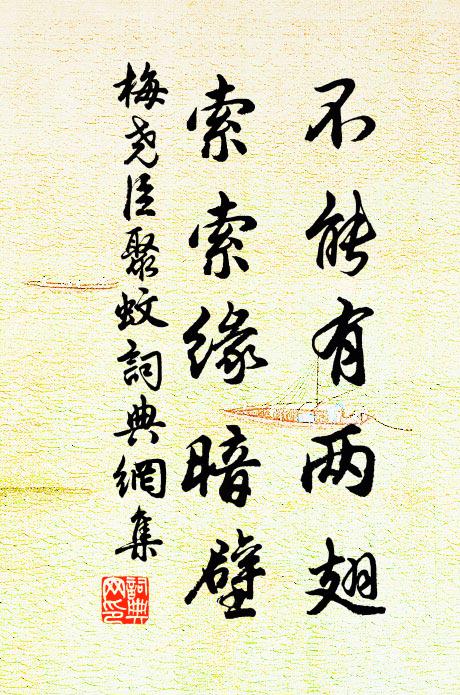 不能有两翅
索索缘暗壁
梅尧臣聚蚊词典網集
詞典網印